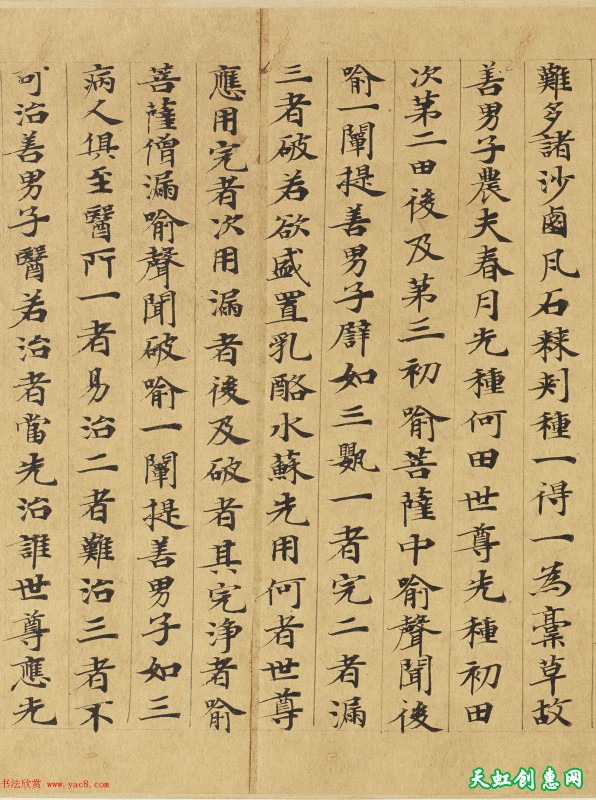 難多諸沙鹵凡石棘刺種一得一為藁草故
善男子農夫春月先種何田世尊先種初田
次第二田後及第三初喻菩薩中喻聲聞後
喻一闡提善男子譬如三甖一者完二者漏
三者破若欲盛置乳酪水蘇先用何者世尊
應用完者次用漏者後及破者其完淨者喻
菩薩僧漏喻聲聞破喻一闡提善男子如三
病人俱至醫所一者易治二者難治三者不
可治善男子醫若治者當先治誰世尊應先
书法欣赏 www.yac8.com
天虹创惠网